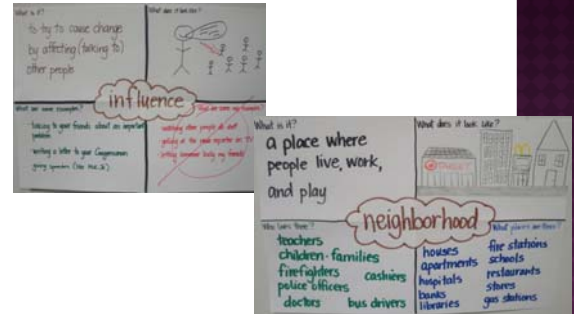 What is it?
to try to cause change
by affecting (talking to)
other people
What does it look like?
influence
What are some examples?
talking to your friends about an important
problem
writing a letter to your Congressman
giving speeches
What is it?
a place where
people live, work,
and play
What does it look like?
neighborhood
Who lives there?
teachers
children · families
firefighters cashiers
police officers
doctors bus drivers
What places are there?
houses
apartments
hospitals
banks
libraries
fire stations
schools
restaurants
stores
gas stations